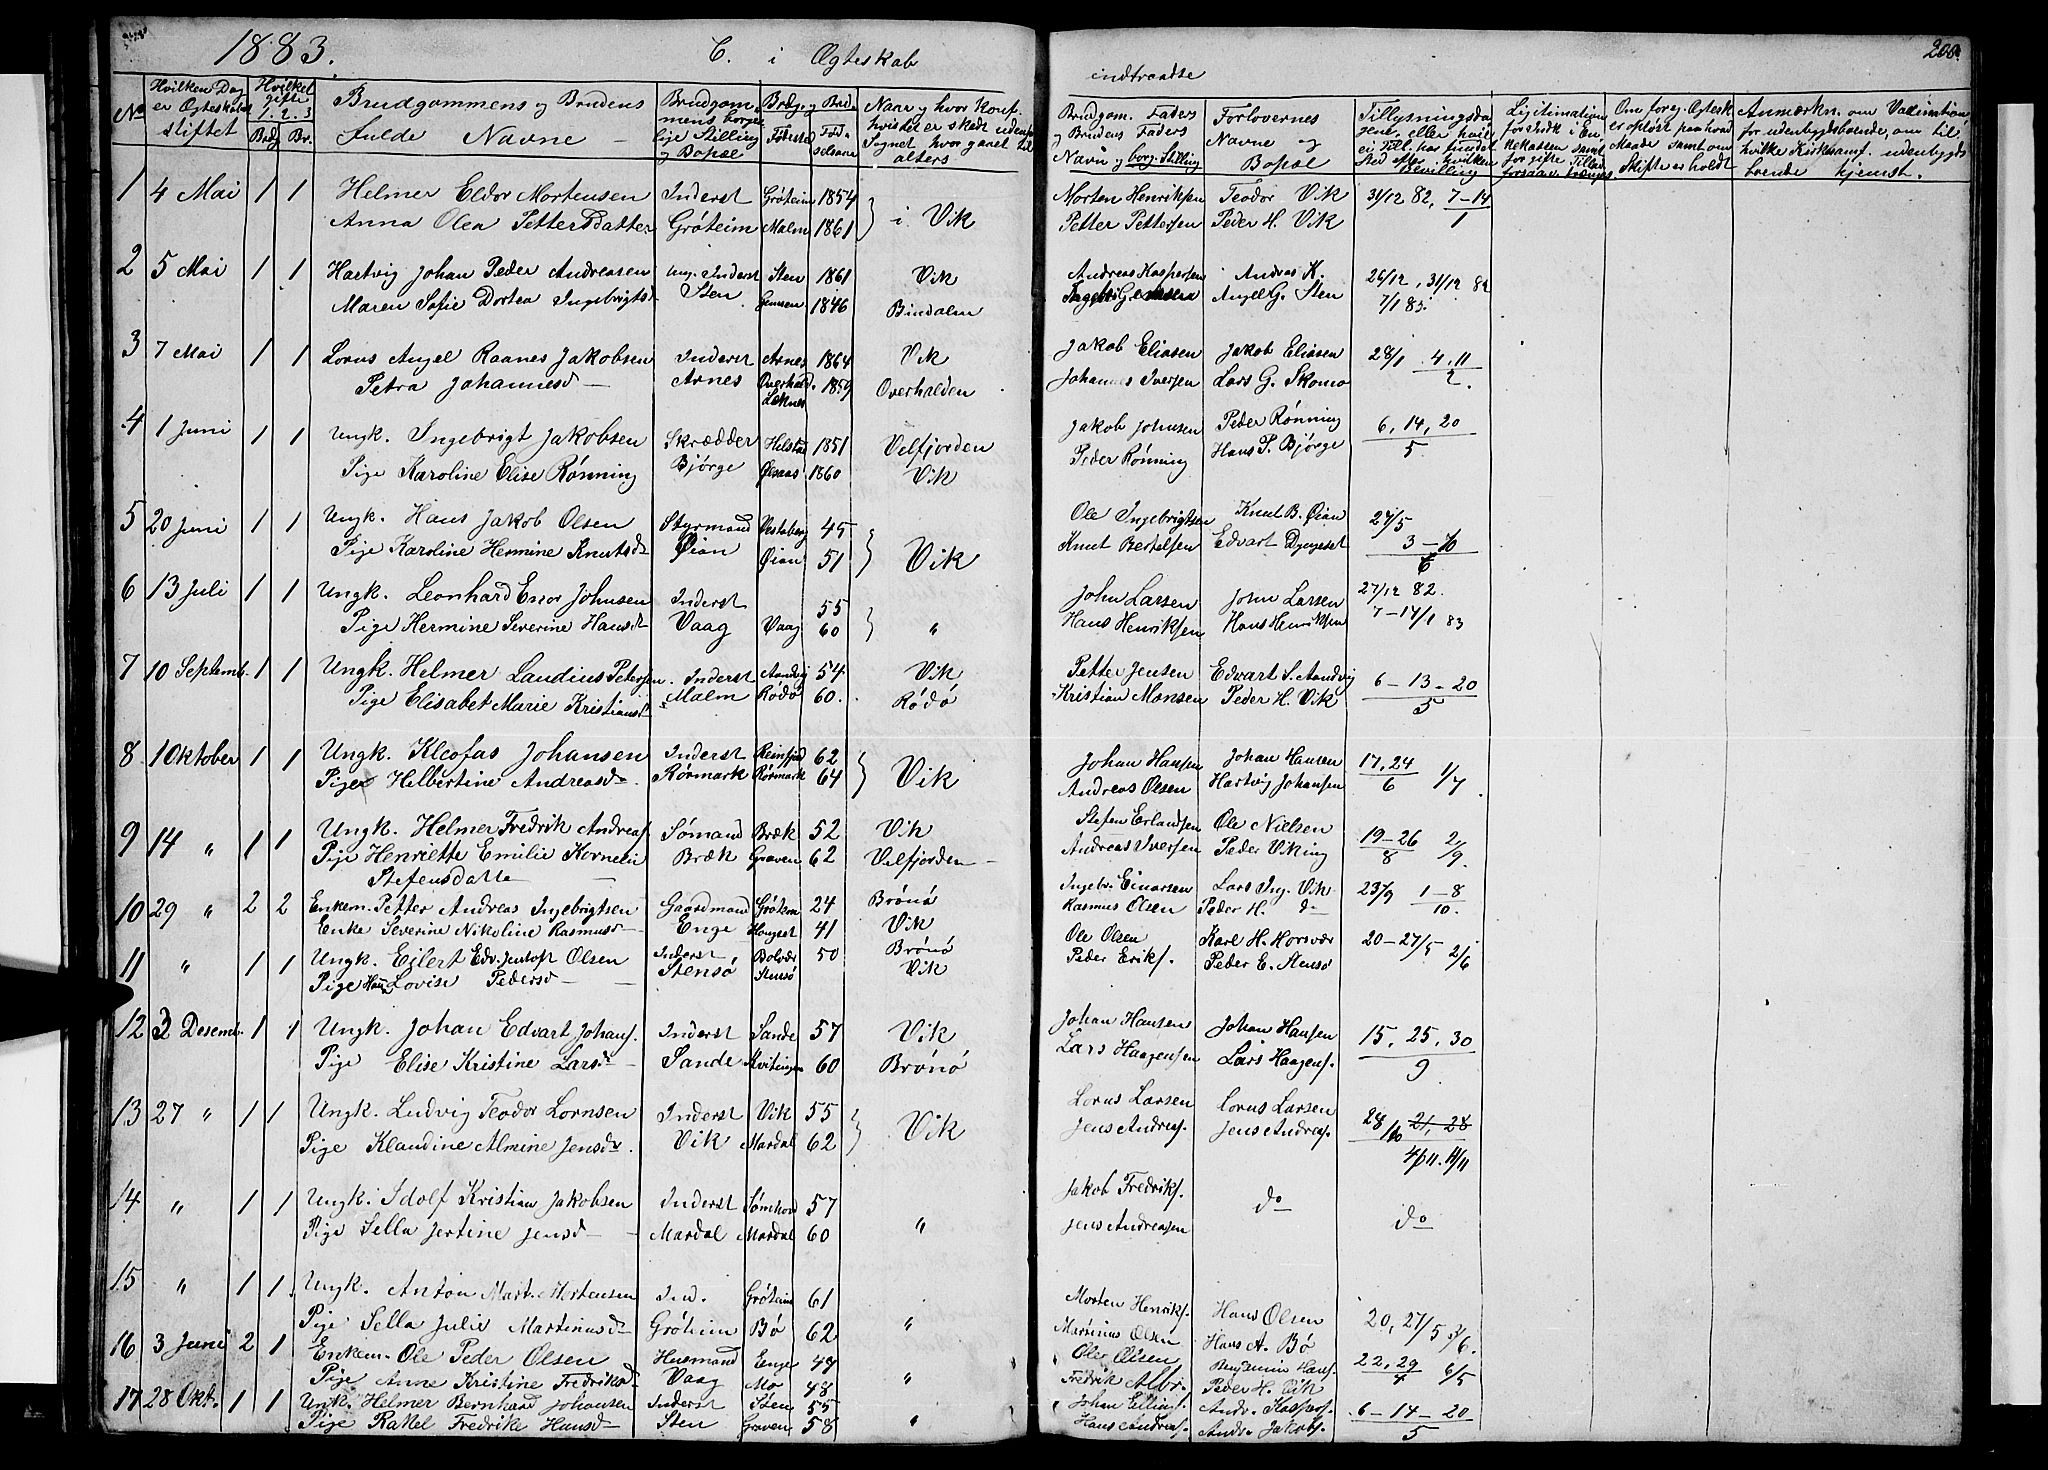 1883.
C. i Ægteskab
indtraadte
200.
No
Hvilken Dag er Ægteskabet stiftet
Hvilket gifte 1. 2. 3
Brdg Br.
Brudgommens og Brudens fulde Navne
Brudgommens borgerlige Stilling og Bopæl
Brdg. og Brud. Fødested Fødselsaar
Brudgom. Faders og Brudens Faders Navn og borg. Stilling
Forlovernes Navne og Bopæl
1 4 Mai 1 1 Helmer Eldor Mortensen Inderst Gróteim 1854 Morten Henriksen Teodor Vik 31/12 82, 7-14
Anna Olea Pettersdatter Gróteim Malm 1861 i Vik Petter Pettersen Peder H. Vik 1
2 5 Mai 1 1 Hartvig Johan Peder Andreasen Ung. Inderst Sten 1861 Vik Andreas Kaspersen Andreas K. 26/12, 31/12 82
Maren Sofie Dortea Ingebrigtsd Sten 1846 Bindalen Angel G. Sten 7/1 83.
3 7 Mai 1 1 Lorns Angel Raanes Jakobsen Inderst Arnes 1864 Vik Jakob Eliasen Jakob Eliasen 28/1 4, 11
Petra Johannesd Arnes Overhald. Læknes 1859 Overhalden Johannes Iversen Lars G. Skomo 2.
4 1 Juni 1 1 Ungk. Ingebrigt Jakobsen Skrædder Helstad 1851 Velfjorden Jakob Johnsen Peder Rónning 6, 14, 20
Pige Karoline Elise Rónning Bjórge Ølsaas 1860 Vik Peder Rónning Hans P. Bjórge 5
5 20 Juni 1 1 Ungk. Hans Jakob Olsen Styrmand Vestaberg 45 Ole Ingebrigtsen Knut B. Øian 27/5
Pige Karoline Hermine Knutsd Øian Øian 51 Vik Knut Bertelsen Edvart Dyngeset 3-10
6
6 13 Juli 1 1 Ungk. Leonhard Enor Johnsen Inderst 55 John Larsen John Larsen 27/12 82.
Pige Hermine Severine Hansd Vaag Vaag 60 " Hans Henriksen Hans Henriksen 7-14/1 83
7 10 Septemb. 1 1 Ungk. Helmer Laudius Petersen Inderst Aandvig 54 Vik Petter Jensen Edvart S. Aandvig 6-13-20
Pige Elisabet Marie Kristiansd Malm Ródó 60. Ródó Kristian Monsen Peder H. Vik 5
8 1 Oktober 1 1 Ungk. Kleofas Johansen Inderst Reinfjord 62 Johan Hansen Johan Hansen 17, 24 1/7
Pige Helbertine Andreasd Rórmark Rórmark 64 Vik Andreas Olsen Hartvig Johansen 6
9 14 " 1 1 Ungk. Helmer Fredrik Andreas. Sómand Bræk 52 Vik Stefen Erlandsen Ole Nielsen 19-26 2/9
Pige Henriette Emilie Kornelie Bræk Graven 62 Velfjorden Andreas Iversen Peder Viking 8
Stefensdatte
10 29 " 2 2 Enkem. Petter Andreas Ingebrigtsen Gaardmand Gróteim 24 Brónó Ingebr. Einarsen Lars Ing. Vik 23/9 1-8
Enke Severine Nikoline Rasmusd Enge 41 Vik Rasmus Olsen Peder H. do 10.
11 " 1 1 Ungk. Eilert Edv. Jentoft Olsen Inderst Bolvær 50 Brónó Ole Olsen Karl H. Horsvær 20-27/5 2/6
Pige Hanna Lovise Pedersd Stensó Stensó Vik Peder Eriks. Peder E. Stensó
12 3 Desemb. 1 1 Ungk. Johan Edvart Johans. Inderst Sande 57 Vik Johan Hansen Johan Hansen 15, 25, 30
Pige Elise Kristine Larsd Sande 60 Brónó Lars Haagensen Lars Haagens. 9
13 27 " 1 1 Ungk. Ludvig Teodor Lornsen Inderst Vik 55 Lorns Larsen Lorns Larsen 28/10 21, 28
Pige Klaudine Almine Jensd. Vik Mardal 62 Vik Jens Andreas. Jens Andreas. 4/11. 11/11
14 " 1 1 Ungk. Idolf Kristian Jakobsen Inderst Sómhovd 57 Jakob Fredriks. do do
Pige Sella Jertine Jensd Mardal Mardal 60 " Jens Andreasen
15 " 1 1 Ungk. Anton Mart. Mortensen Ind. Gróteim 61 Morten Henriks. Hans Olsen 20, 27/5 3/6.
Pige Sella Julie Martinusd Gróteim Bó 62 " Martinus Olsen Hans A. Bó
16 3 Juni 2 1 Enkem. Ole Peder Olsen Husmand Enge 47 Ole Olsen Benjamin Hans. 22, 29 6/5
Pige Anne Kristine Fredriksd Vaag Mo 48 " Fredrik Albr. Peder H. Vik 4
17 28 Okt. 1 1 Ungk. Helmer Bernhard Johansen Inderst Sten 55 Johan Ellings. Andr. Kaspers. 6-14-20
Pige Rakel Fredrikke Hansd Sten Graven 58 " Hans Andreas. Andr. Jakobs. 5